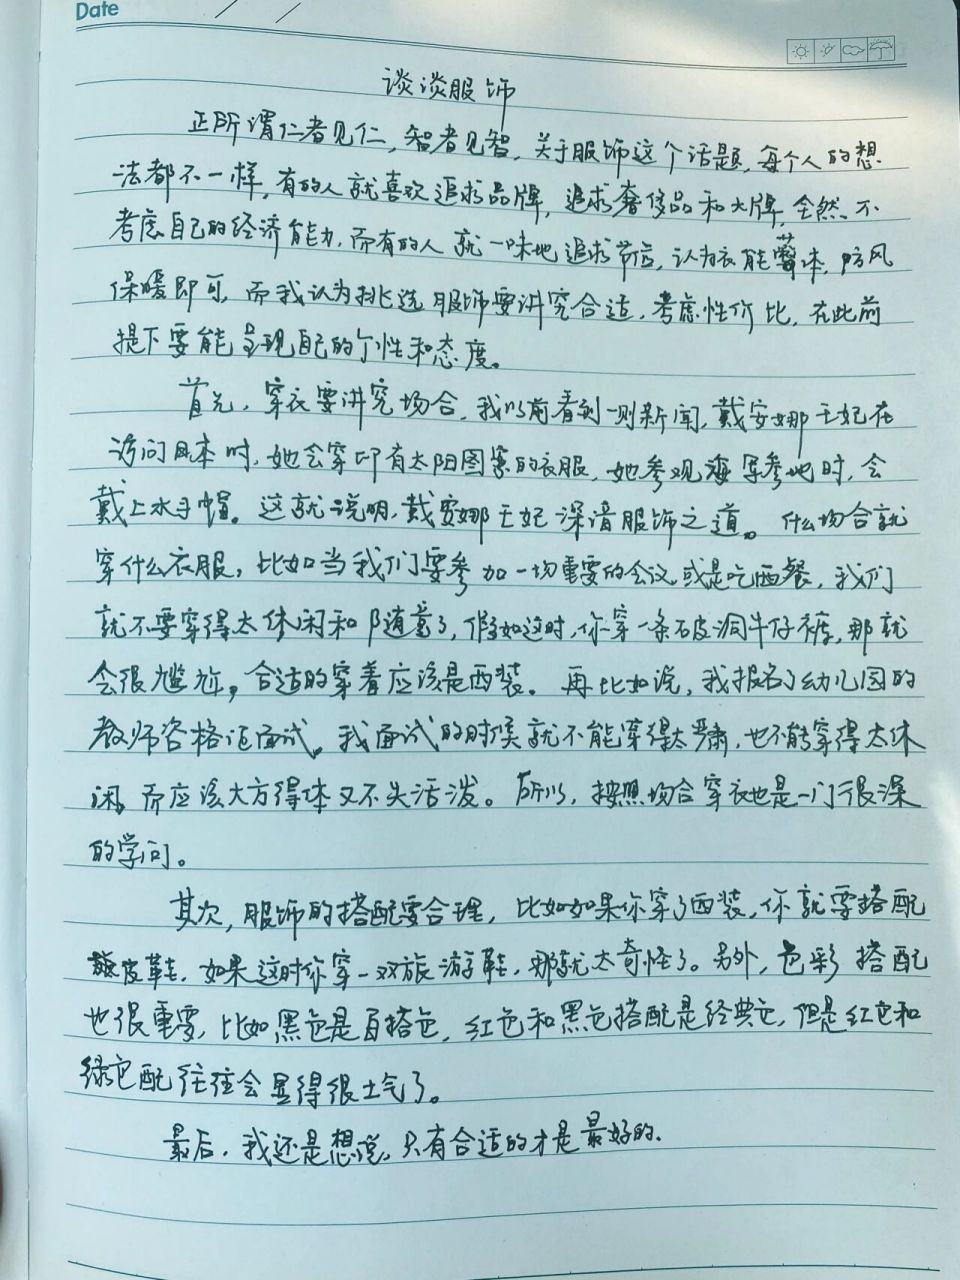 Date
谈谈服饰
正所谓仁者见仁，智者见智，关于服饰这个话题，每个人的想
法都不一样，有的人就喜欢追求品牌，追求奢侈品和大牌，全然不
考虑自己的经济能力，而有的人就一味地追求节俭，认为衣能蔽体，防风
保暖即可，而我认为挑选服饰要讲究合适，考虑性价比，在此前
提下要能呈现自己的个性和态度。
首先，穿衣要讲究场合，我以前看到一则新闻，戴安娜王妃在
访问日本时，她会穿印有太阳图案的衣服，她参观海军参地时，会
戴上水手帽。这就说明，戴安娜王妃深谙服饰之道。什么场合就
穿什么衣服，比如当我们要参加一切重要的会议或是吃西餐，我们
就不要穿得太休闲和随意了，假如这时，你穿一条破洞牛仔裤，那就
会很尴尬，合适的穿着应该是西装。再比如说，我报名了幼儿园的
教师资格证面试，我面试的时候就不能穿得太严肃，也不能穿得太休
闲，而应该大方得体又不失活泼。所以，按照场合穿衣也是一门很深
的学问。
其次，服饰的搭配要合理，比如如果你穿了西装，你就要搭配
皮鞋，如果这时你穿一双旅游鞋，那就太奇怪了。另外，色彩搭配
也很重要，比如黑色是百搭色，红色和黑色搭配是经典色，但是红色和
绿色配往往会显得很土气了。
最后，我还是想说，只有合适的才是最好的。